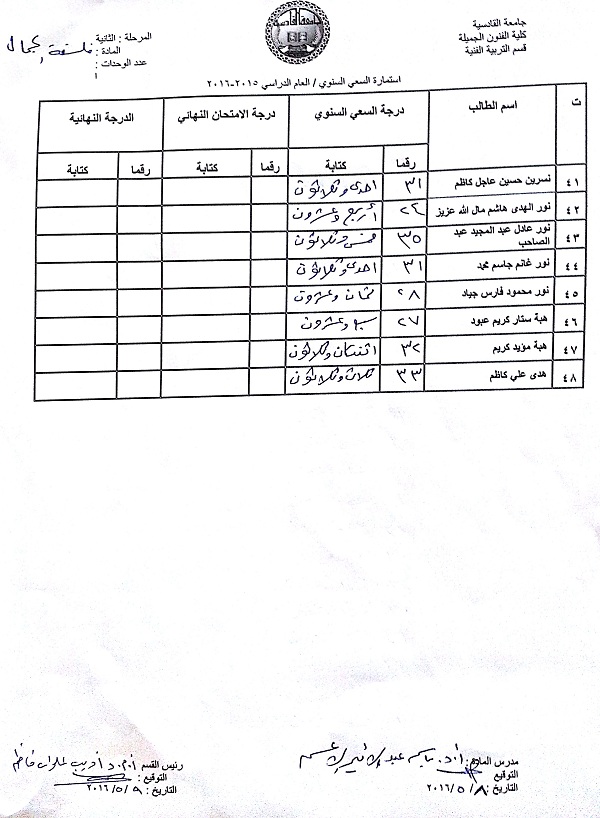 جامعة القادسية
كلية الفنون الجميلة
قسم التربية الفنية
المرحلة : الثانية
المادة : فلسفة الجمال
عدد الوحدات :
استمارة السعي السنوي / العام الدراسي ٢٠١٥-٢٠١٦
ت اسم الطالب درجة السعي السنوي درجة الامتحان النهائي الدرجة النهائية
رقما كتابة رقما كتابة رقما كتابة
٤١ نسرين حسين عاجل كاظم ٣١ احدى وثلاثون
٤٢ نور الهدى هاشم مال الله عزيز ٢٤ أربع وعشرون
٤٣ نور عادل عبد المجيد عبد
الصاحب ٣٥ خمس وثلاثون
٤٤ نور غانم جاسم محمد ٣١ احدى وثلاثون
٤٥ نور محمود فارس جياد ٢٨ ثمان وعشرون
٤٦ هبة ستار كريم عبود ٢٧ سبع وعشرون
٤٧ هبة مؤيد كريم ٣٢ اثنتان وثلاثون
٤٨ هدى علي كاظم ٣٣ ثلاث وثلاثون
مدرس المادة : أ.د. باسم عبد الامير الاعسم
التوقيع
التاريخ : ٢٠١٦/٥/٨
رئيس القسم كاظم
التوقيع :
التاريخ : ٢٠١٦/٥/٩